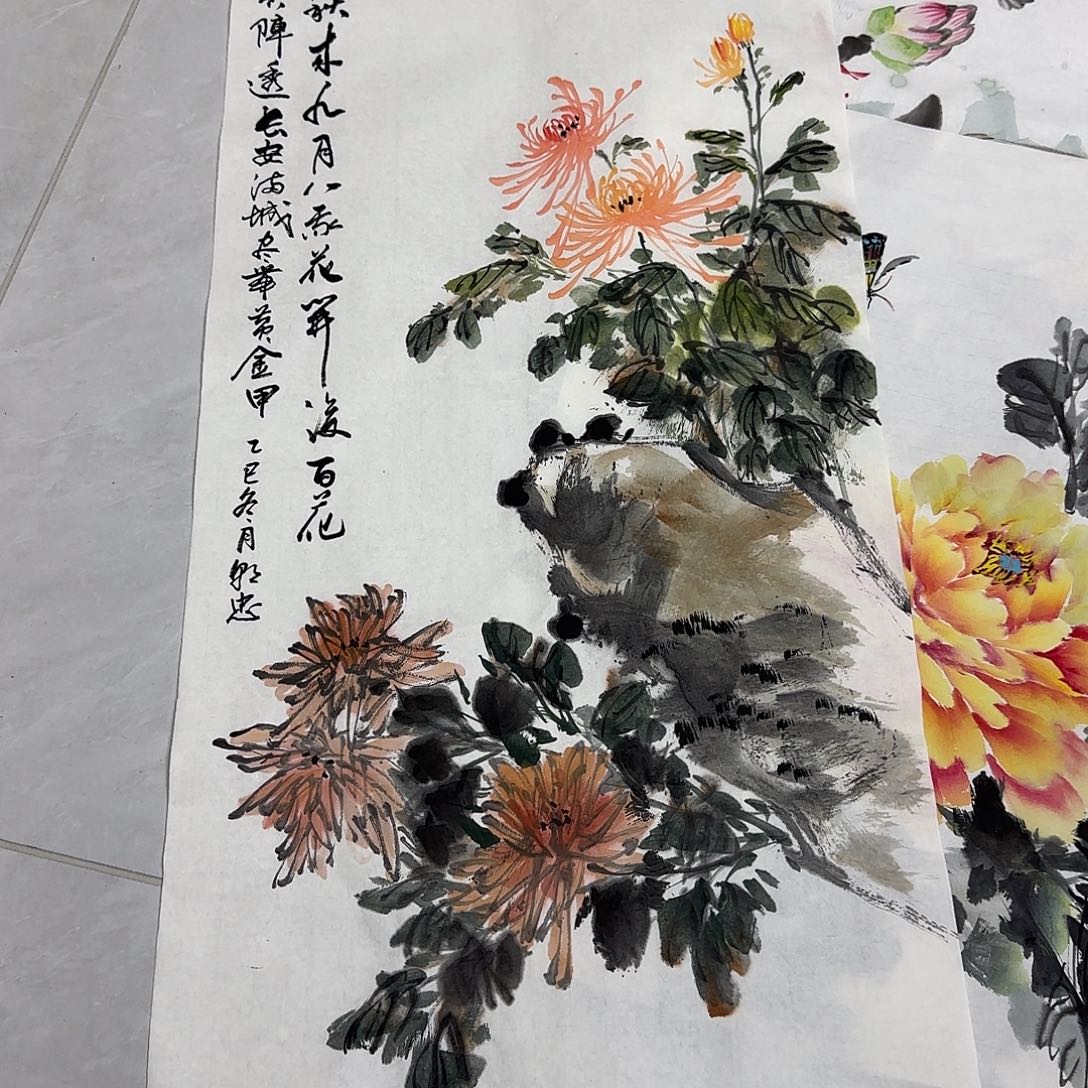 秋来九月八我花開後百花
陣透长安满城尽帶黄金甲
乙巳冬月忠